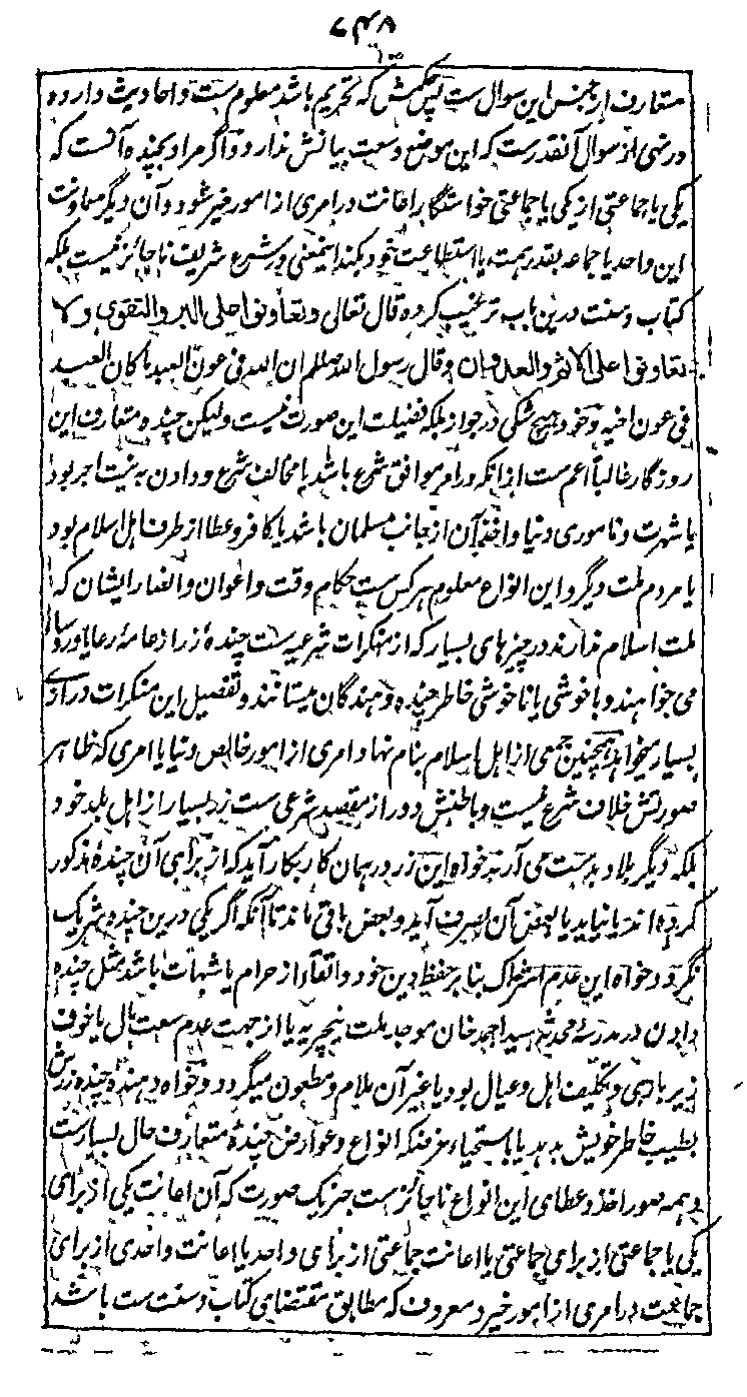 ۶۴۸
متعارف از جنس این سوال ست پس حکمش که تحریم باشد معلوم ست و احادیث وارده
در نهی از سوال آنقدر ست که این موضع وسعت بیانش ندارد و اگر مراد بچنده آنست که
یکی یا جماعتی از یکی یا جماعتی خواستگار اعانت در امری از امور خیر شود و آن دیگر معاونت
این واحد یا جماعه بقدر همت یا استطاعت خود بکند اینمعنی در شرع شریف ناجائز نیست بلکه
کتاب و سنت درین باب ترغیب کرده قال تعالی و تعاونوا علی البر والتقوی ولا
تعاونوا علی الاثم والعدوان و قال رسول الله صللم ان الله فی عون العبد ما کان العبد
فی عون اخیه و خود هیچ شکی در جواز بلکه فضیلت این صورت نیست ولیکن چنده متعارف این
روزگار غالباً اعم ست ازانکه در امر موافق شرع باشد یا مخالف شرع و دادن به نیت اجر بود
یا شهرت و ناموری دنیا و اخذ آن از جانب مسلمان باشد یا کافر و عطا از طرف اهل اسلام بود
یا مردم ملت دیگر و این انواع معلوم هر کس ست حکام وقت و اعوان و انصار ایشان که
ملت اسلام ندارند در چیزهای بسیار که از منکرات شرعیه ست چندهٔ زر از عامهٔ رعایا و روسا
می خواهند و با خوشی یا ناخوشی خاطر چنده دهندگان میستانند و تفصیل این منکرات درازی
بسیار میخواهد همچنین جمعی از اهل اسلام بنام نهاد امری از امور خالص دنیا یا امری که ظاهر
صورتش خلاف شرع نیست و باطنش دور از مقصد شرعی ست زر بسیار از اهل بلد خود
بلکه دیگر بلاد بدست می آرند خواه این زر در همان کار بکار آید که از برای آن چندهٔ مذکور
کرده اند یا نیاید یا بعض آن بصرف آید و بعض باقی ماند تا آنکه اگر یکی درین چنده شریک
نگردد خواه این عدم اشتراک بنابر حفظ دین خود و اتقاء از حرام یا شبهات باشد مثل چنده
دادن در مدرسهٔ محدثهٔ سید احمد خان موجد ملت نیچریه یا از جهت عدم سعت مال یا خوف
زیرباری و تکلیف اهل و عیال بود یا غیر آن ملام و مطعون میگردد و خواه دهندهٔ چنده زرش
بطیب خاطر خویش بدهد یا باستحیاء غرضکه انواع و عوارض چندهٔ متعارف حال بسیارست
و همه صور اخذ و عطای این انواع ناجائز ست جز یک صورت که آن اعانت یکی از برای
یکی یا جماعتی از برای جماعتی یا اعانت جماعتی از برای واحد یا اعانت واحدی از برای
جماعت در امری از امور خیر و معروف که مطابق مقتضای کتاب و سنت ست باشد